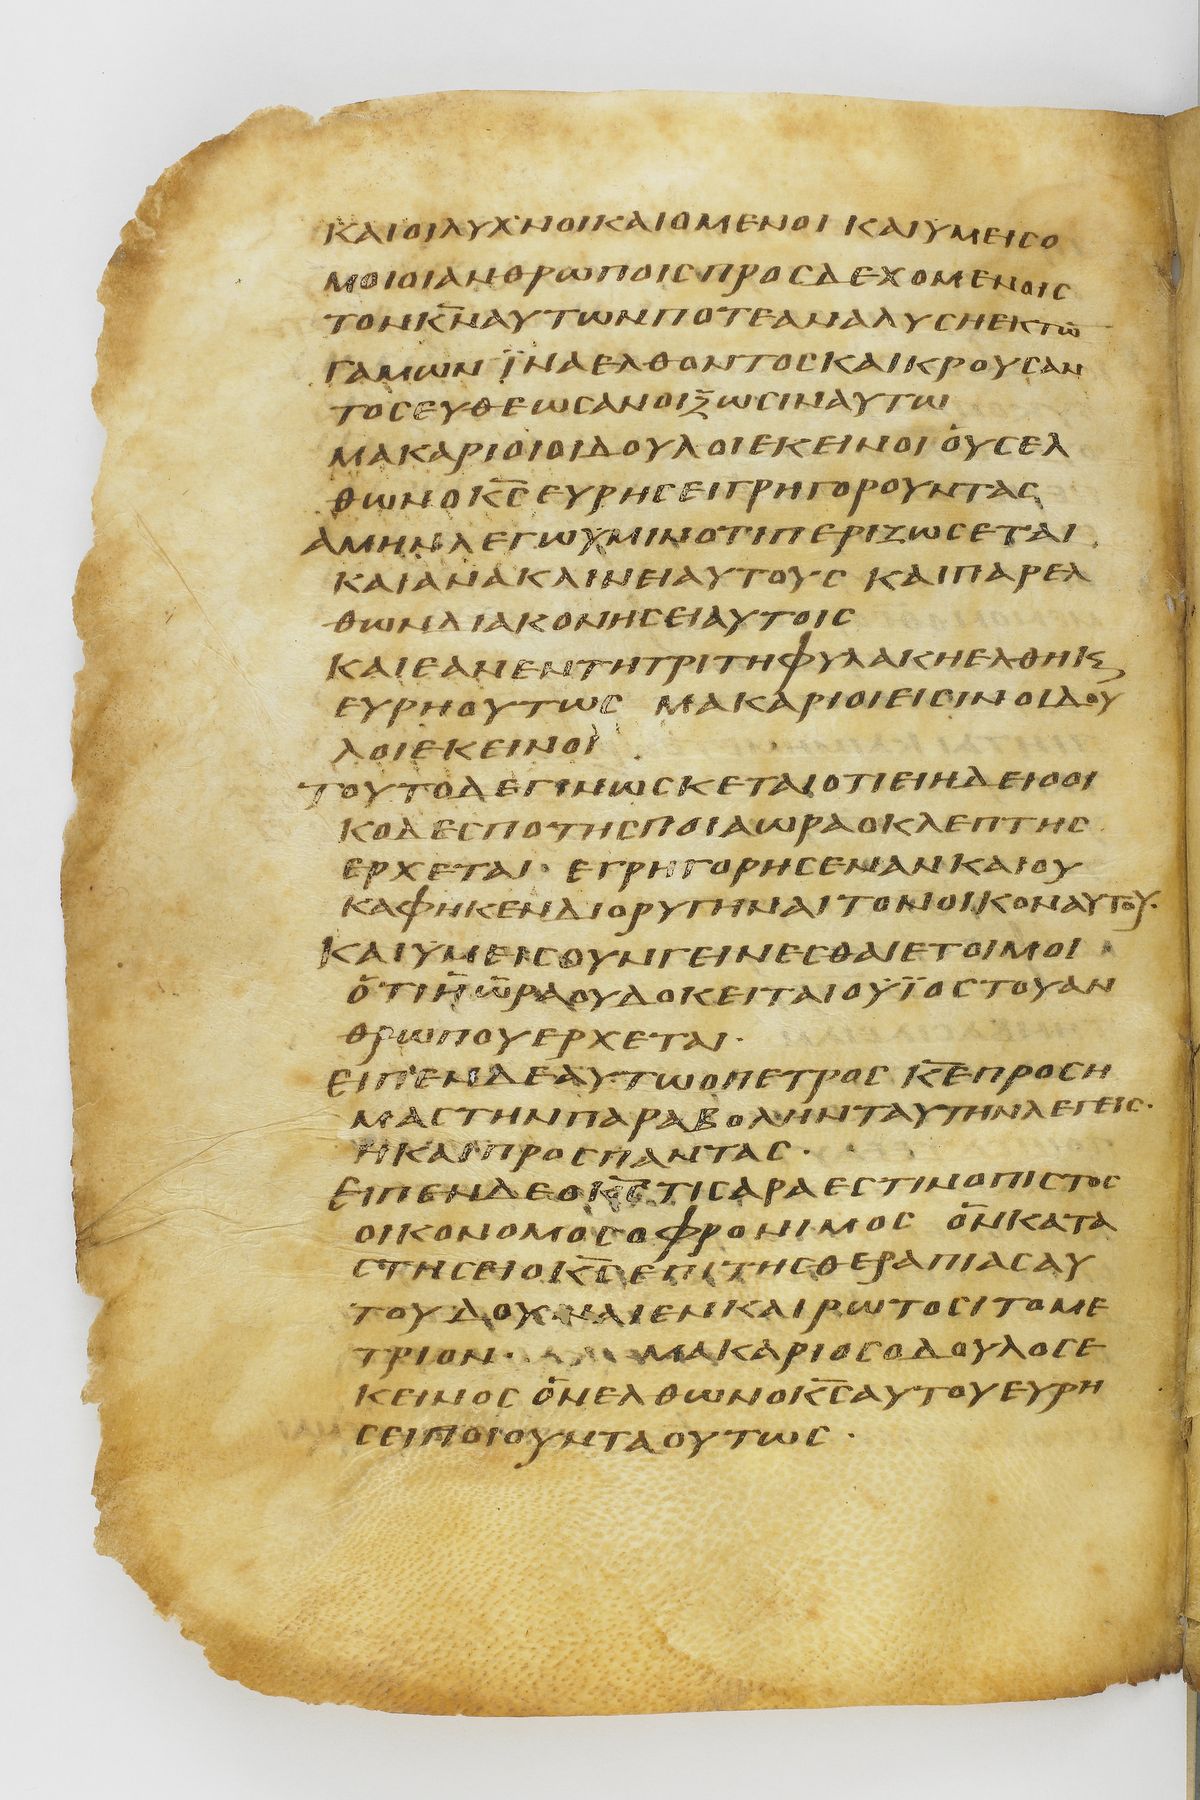 ΚΑΙΟΙΛΥΧΝΟΙΚΑΙΟΜΕΝΟΙ ΚΑΙΥΜΕΙϹΟ
ΜΟΙΟΙΑΝΘΡΩΠΟΙϹΠΡΟϹΔΕΧΟΜΕΝΟΙϹ
ΤΟΝΚ̅Ν̅ΑΥΤΩΝΠΟΤΕΑΝΑΛΥϹΗΕΚΤΩ̅
ΓΑΜΩΝ ΪΝΑΕΛΘΟΝΤΟϹΚΑΙΚΡΟΥϹΑΝ
ΤΟϹΕΥΘΕΩϹΑΝΟΙΞΩϹΙΝΑΥΤΩ
ΜΑΚΑΡΙΟΙΟΙΔΟΥΛΟΙΕΚΕΙΝΟΙ ΟΥϹΕΛ
ΘΩΝΟΚ̅Ϲ̅ΕΥΡΗϹΕΙΓΡΗΓΟΡΟΥΝΤΑϹ
ΑΜΗΝΛΕΓΩΥΜΙΝΟΤΙΠΕΡΙΖΩϹΕΤΑΙ
ΚΑΙΑΝΑΚΛΙΝΕΙΑΥΤΟΥϹ ΚΑΙΠΑΡΕΛ
ΘΩΝΔΙΑΚΟΝΗϹΕΙΑΥΤΟΙϹ
ΚΑΙΕΑΝΕΝΤΗΤΡΙΤΗΦΥΛΑΚΗΕΛΘΗΚϚ
ΕΥΡΗΟΥΤΩϹ ΜΑΚΑΡΙΟΙΕΙϹΙΝΟΙΔΟΥ
ΛΟΙΕΚΕΙΝΟΙ
ΤΟΥΤΟΔΕΓΙΝΩϹΚΕΤΑΙΟΤΙΕΙΗΔΕΙΟΟΙ
ΚΟΔΕϹΠΟΤΗϹΠΟΙΑΩΡΑΟΚΛΕΠΤΗϹ
ΕΡΧΕΤΑΙ · ΕΓΡΗΓΟΡΗϹΕΝΑΝΚΑΙΟΥ
ΚΑΦΗΚΕΝΔΙΟΡΥΓΗΝΑΙΤΟΝΟΙΚΟΝΑΥΤΟΥ·
ΚΑΙΥΜΕΙϹΟΥΝΓΕΙΝΕϹΘΑΙΕΤΟΙΜΟΙ
ΟΤΙΗΩΡΑΟΥΔΟΚΕΙΤΑΙΟΥΪΟϹΤΟΥΑΝ
ΘΡΩΠΟΥΕΡΧΕΤΑΙ ·
ΕΙΠΕΝΔΕΑΥΤΩΟΠΕΤΡΟϹ Κ̅Ε̅ΠΡΟϹΗ
ΜΑϹΤΗΝΠΑΡΑΒΟΛΗΝΤΑΥΤΗΝΛΕΓΕΙϹ·
ΗΚΑΙΠΡΟϹΠΑΝΤΑϹ ·
ΕΙΠΕΝΔΕΟΚ̅Ϲ̅ΤΙϹΑΡΑΕϹΤΙΝΟΠΙϹΤΟϹ
ΟΙΚΟΝΟΜΟϹΟΦΡΟΝΙΜΟϹ ΟΝΚΑΤΑ
ϹΤΗϹΕΙΟΚ̅Ϲ̅ΕΠΙΤΗϹΘΕΡΑΠΙΑϹΑΥ
ΤΟΥΔΟΥΝΑΙΕΝΚΑΙΡΩΤΟϹΙΤΟΜΕ
ΤΡΙΟΝ · ΜΑΚΑΡΙΟϹΟΔΟΥΛΟϹΕ
ΚΕΙΝΟϹ ΟΝΕΛΘΩΝΟΚ̅Ϲ̅ΑΥΤΟΥΕΥΡΗ
ϹΕΙΠΟΙΟΥΝΤΑΟΥΤΩϹ ·